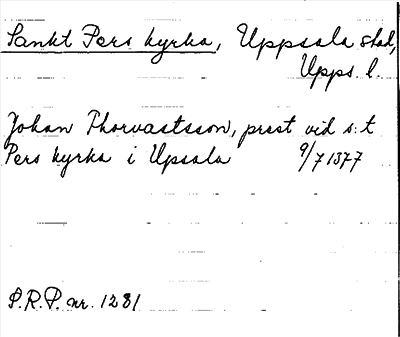 Sankt Pers kyrka, Uppsala stad,
Upps. l.
Johan Thorvastsson, prest vid s:t
Pers kyrka i Upsala 9/7 1377
S.R.P. nr. 1281